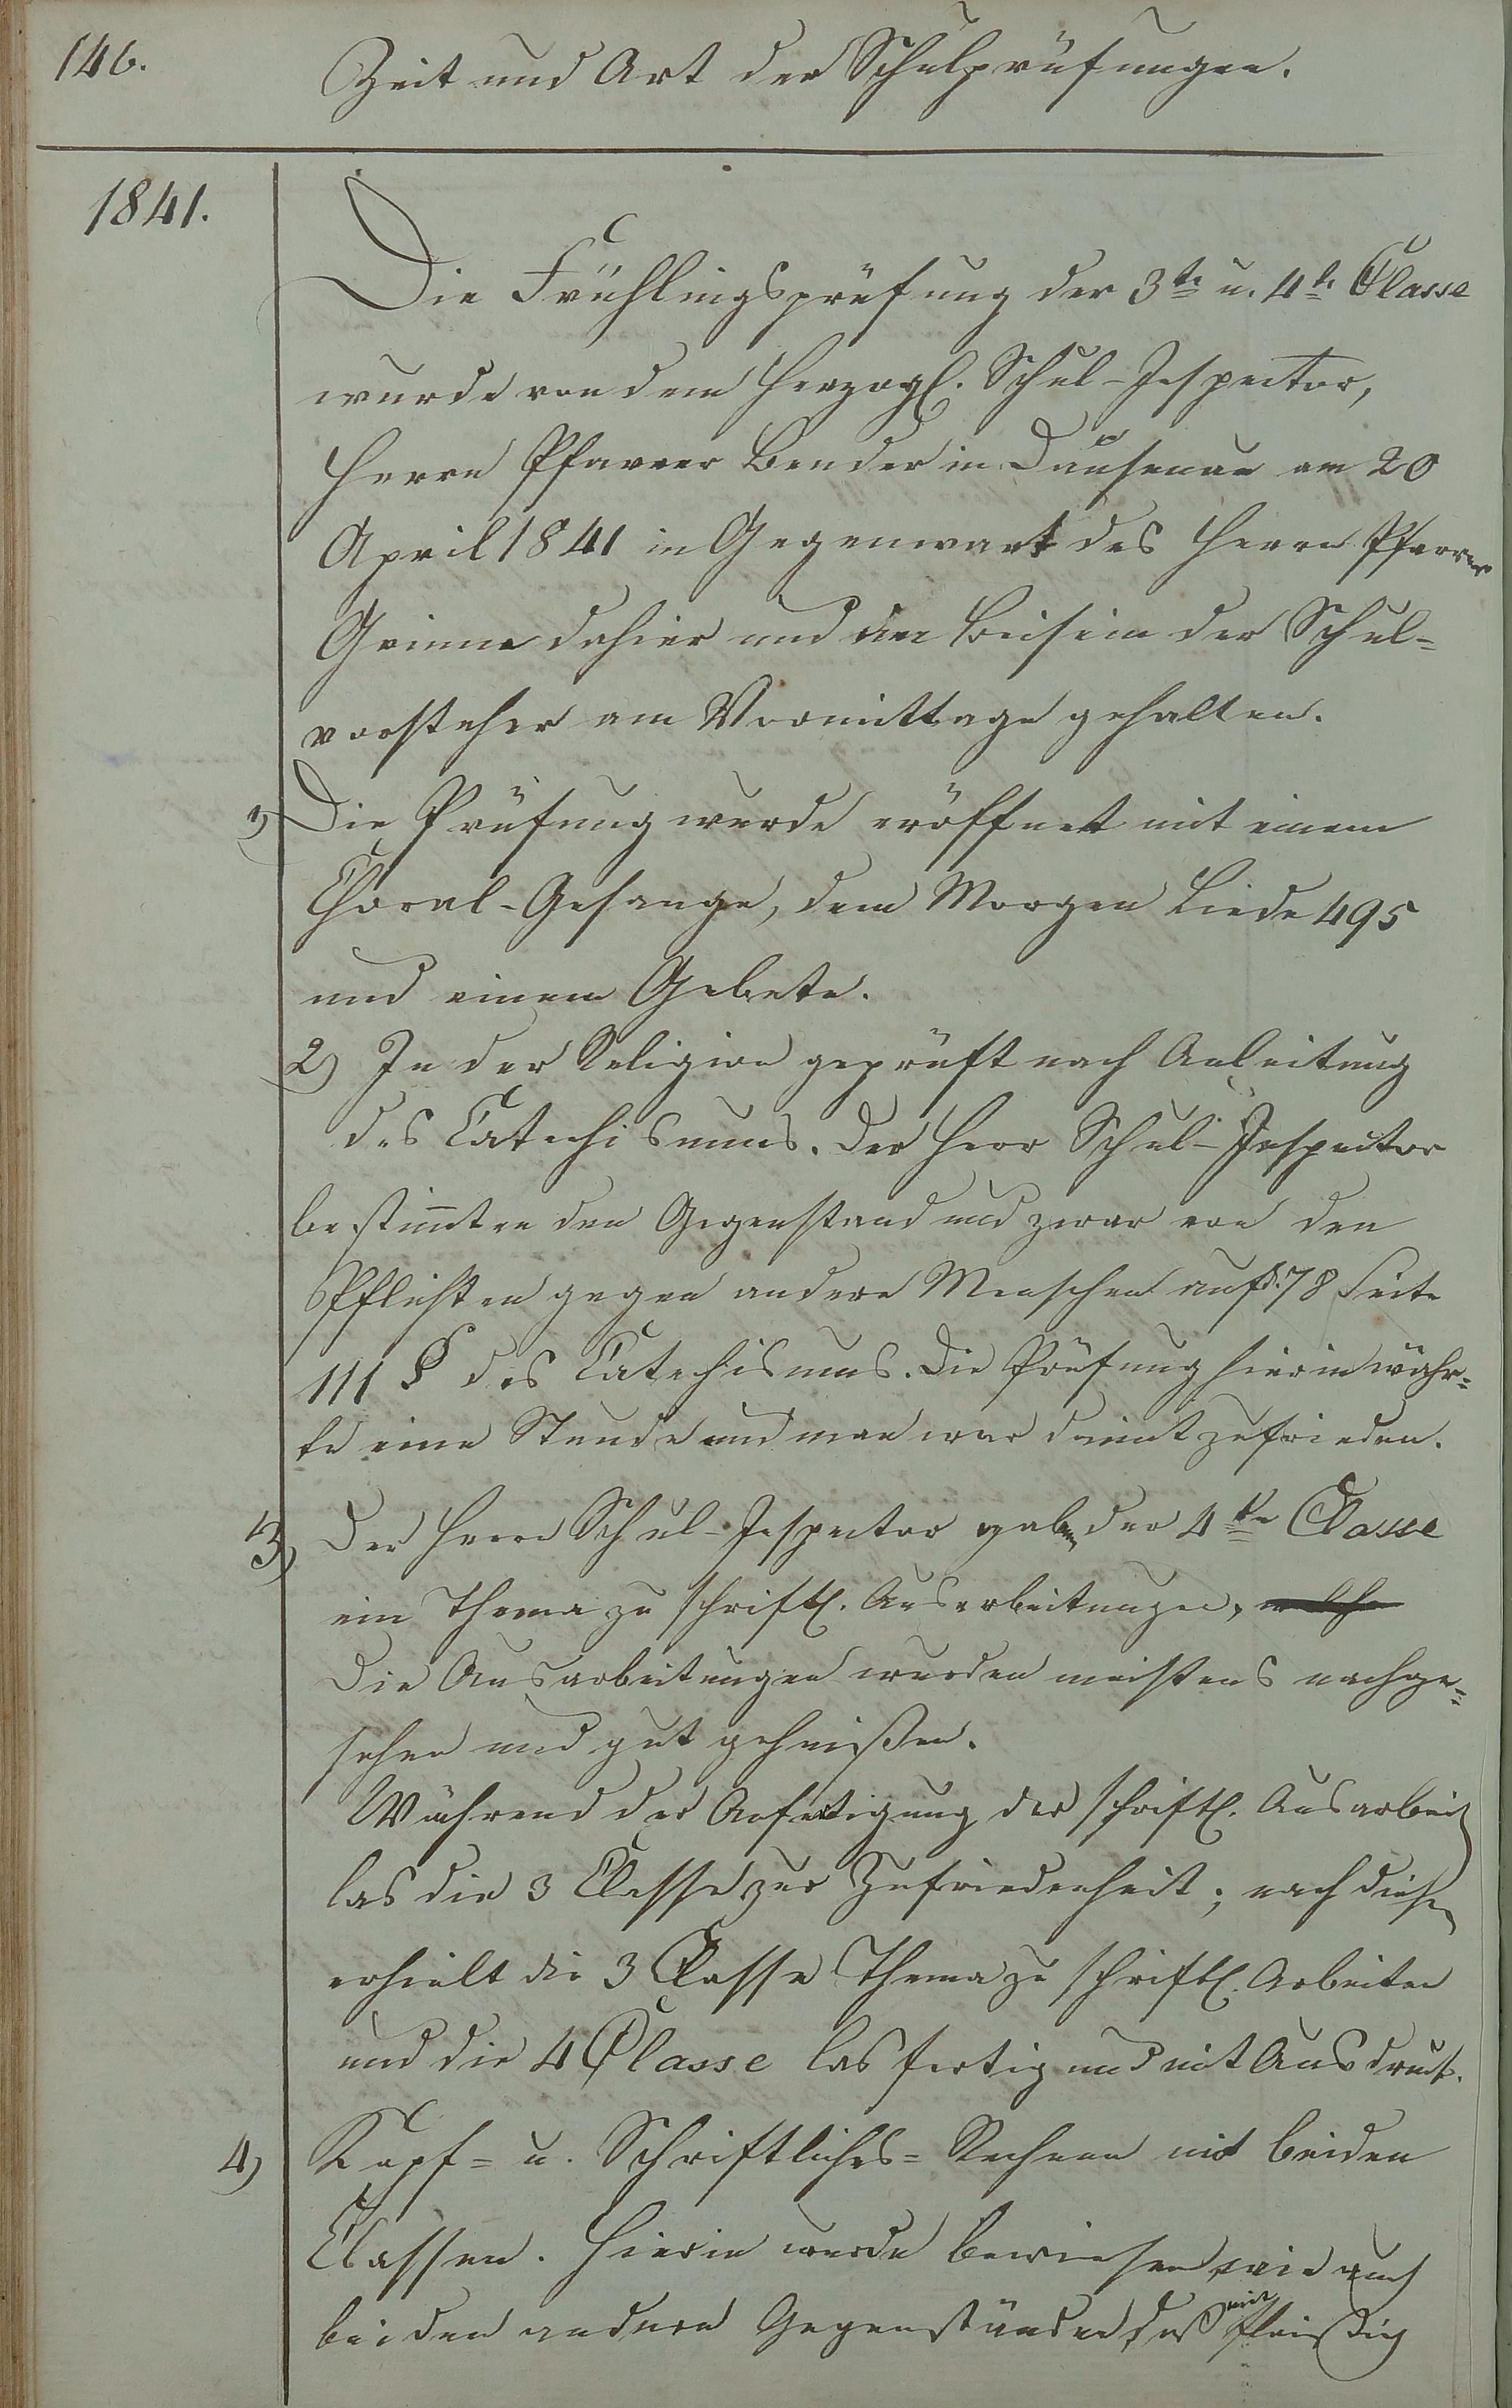 146.
Zeit und Art der Schulprüfungen.
1841.
Die Frühlingsprüfung der 3te u. 4te Classe
wurde von dem Herzogl. Schul-Inspector,
Herrn Pfarrer Bender in Dausenau am 20
April 1841 in Gegenwart des Herrn Pfarrer
Grimm dahier und im Beisein der Schul=
vorsteher am Vormittage gehalten.
1) Die Prüfung wurde eröffnet mit einem
Choral-Gesange, dem Morgen Liede 495
und einem Gebete.
2) In der Religion geprüft nach Anleitung
des Catechismus. Der Herr Schul-Inspector
bestimten den Gegenstand und zwar von den
Pflichten gegen andere Menschen auf d. 78 Seite
111 § des Catechismus. Die Prüfung hierin währ=
te eine Stunde und man war damit zufrieden.
3) Der Herr Schul-Inspector gaben der 4te Classe
ein Thema zu schriftl. Ausarbeitungen, welche
Die Ausarbeitungen wurden meistens nachge=
sehen und gut geheißen.
Während der Anfertigung der schriftl. Ausarbeit
las die 3 Classe zur Zufriedenheit; nach diesem
erhielt die 3 Classe Thema zu schriftl. Arbeiten
und die 4 Classe las fertig und mit Ausdruck.
4) Kopf= u. Schriftliches= Rechnen mit beiden
Classen. Hierin wurde bewiesen, wie auch
bei den andern Gegenständen, daß wir fleißig